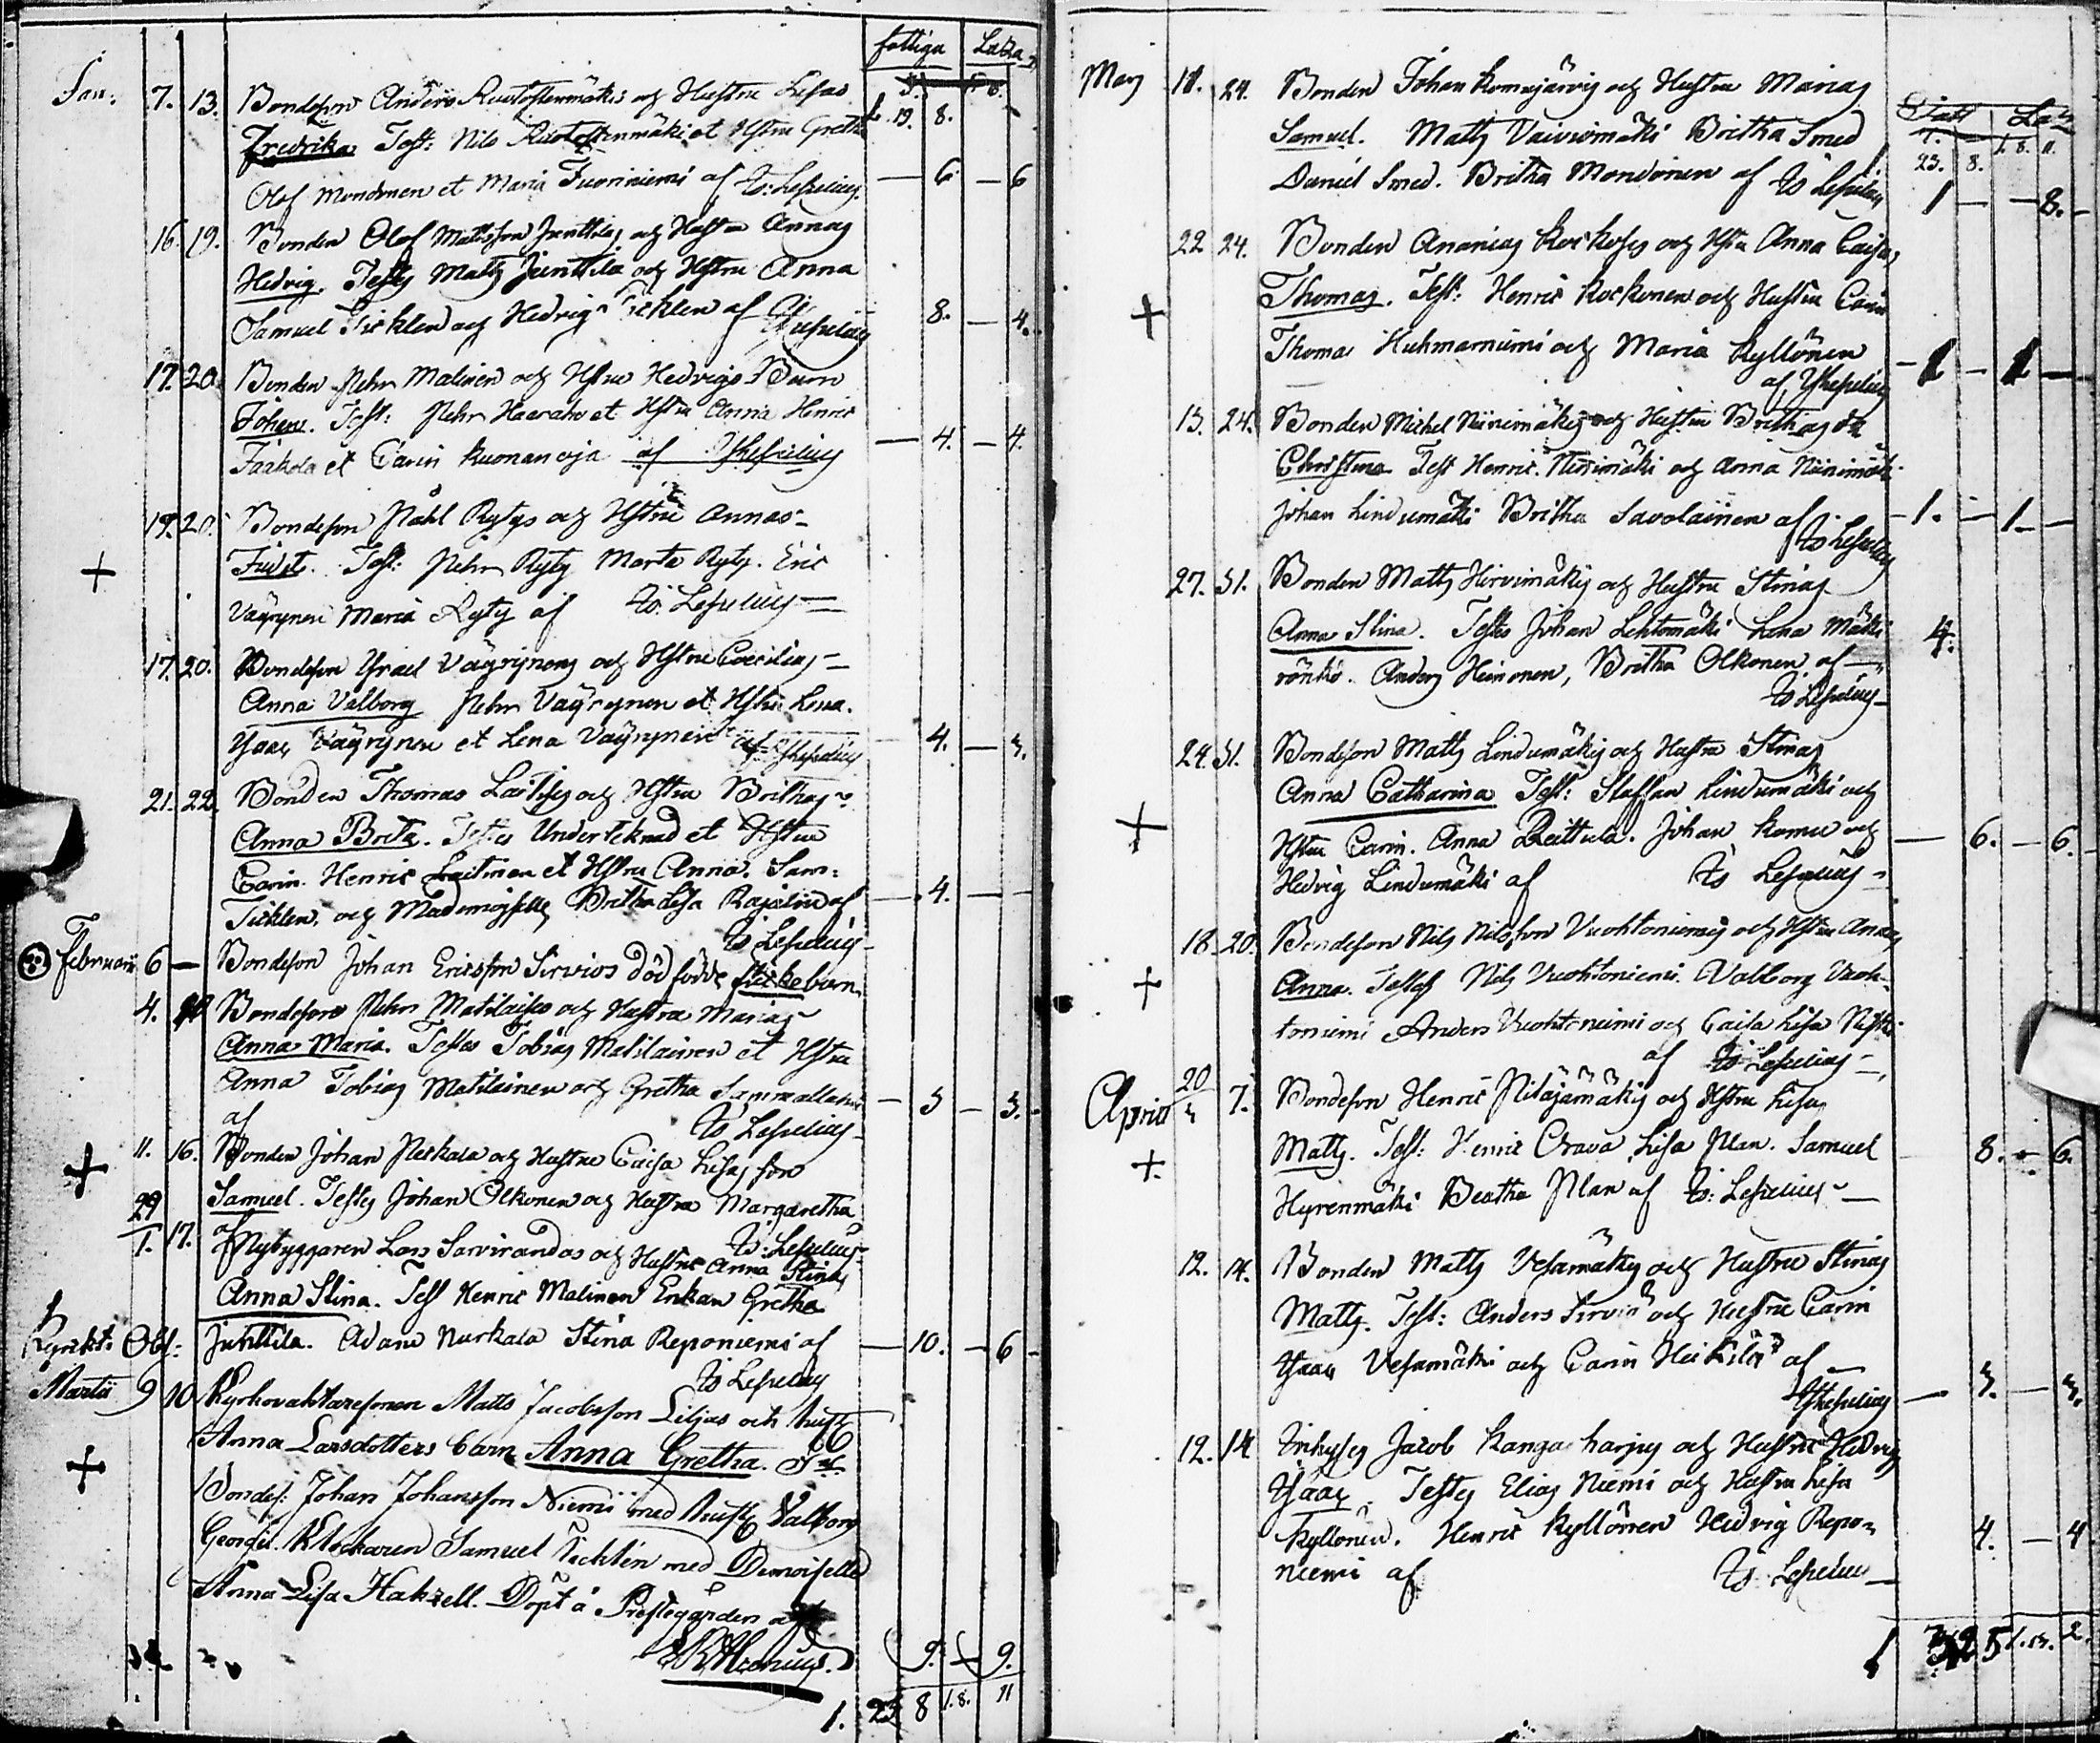 fattiga Laza
Jan: 7. 13. Bondeson Anders Ruotostenmäkis og Hustru Lisas
Fredrika Test: Nils Ruotostenmäki et Hstru Gretha 19. 8.
Olof Mondonen et Maria Tuoriniemi af Is: Lesselius. — 6 — 6
16. 19. Bonden Olof Matsson Junttilas og Hustru Annas
Hedvig. Testes Matts Junttila och Hstru Anna
Samuel Ticklen og Hedvig Ticklen af 8. — 4.
17. 20. Bonden Pehr Malinen och Hstru Hedvigs Barn
Johan. Test: Pehr et Hstru Anna Henric
Jaakola et Carin Kuonanoja af — 4. — 4.
19. 20. Bondeson Påhl Rytys og Hstru Annas
Test: Pehr Ryty Marta Ryty. Eric
+ Väyrynen Maria Ryty af Is: Lesselius —
17. 20. Bondeson Israel Väyrynens og Hstru Coecilias
Anna Valborg Pehr Väyrynen et Hstru Lena.
Isaac Väyrynen et Lena Väyrynen af 4. — 3.
21. 22. Bonden Thomas Laitises og Hstru Brithas
Anna Brita. Testes Underteknad et Hstru
Carin. Henric Laitinen et Hstru Anna. Sam:
Ticklen, og Mademoiselle Britha Lisa Rajalin af — 4. — —
Is Lesselius
Februarii 6 — Bondeson Johan Ericsson Sirvios dödfödde flickebarn
4. Bondeson Pehr Matilaises og Hustru Marias
Anna Maria. Testes Tobias Matilainen et Hstru
Anna Tobias Matilainen och Gretha — 3 — 3.
af Is Lesselius
+ 11. 16. Bonden Johan Neskala og Hustru Caisa Lisas son
Samuel. Testes Johan Olkonen og Hustru Margaretha
af Is: Lesselius
29/1. 17. Nybyggaren Lars Sarvirandas og Hustru Anna Stinas
Anna Stina. Test Henric Malinen Enkan Gretha
Junttila. Adam Nurkala Stina Reponiemi af — 10. — 6
Is Lesselius
Martii 9 10 Kyrkovaktaresonen Matts Jacobsson Liljas och hust
+ Anna Larsdotters barn Anna Gretha. Test
Bondes: Johan Johansson Niemi med hust Valborg
Georgii. Klockaren Samuel Ticklén med Demoiselle
Anna Lisa Hakzell. Döpt å Prestegården af
9. 9.
1. 23 8 1. 8. 11
Mars 18. 24. Bonden Johan Komujärvis og Hustru Marias
Samuel. Matts Vaiviomäki Britha Smed
23. 8. 1. 8. 11.
Daniel Smed. Britha Mondonen af Is Lesselius 1 — — 8.
22 24. Bonden Ananias Kockoses og Hstru Anna Caisas
+ Thomas. Test: Henric Kockonen och Hustru Carin
Thomas Huhmarniemi och Maria Kyllönen — 1 — 1 —
af
13. 24. Bonden Michel Niinimäkis og Hustru Brithas
Christina Test Henric Niinimäki og Anna Niinimäki
Johan Lindumäki Britha Savolainen af — 1. — 1 —
Is Lesselius
27. 31. Bonden Matts Hirvimäkis og Hustru Stinas
Anna Stina. Testes Johan Lehtomäki Lena Mäki 4.
rönkö. Anders Heinonen, Britha Olkonen af —
Is Lesselius
24. 31. Bondeson Matts Lindumäkis og Hustru Stinas
Anna Catharina Test: Staffan Lindumäki och
+ Hstru Carin. Anna Reittula. Johan Komu och — 6. — 6.
Hedvig Lindumäki af Is Lesselius
18. 20. Bondeson Nils Nilsson Vuohtoniemis och Hstru Annas
+ Anna. Testes Nils Vuohtoniemi. Valborg Vuoh-
toniemi Anders Vuohtoniemi og Caisa Lisa
af Is Lesselius
April 20/3 7. Bondeson Henric Pitäjämäkis og Hstru Lisas
+ Matts. Test: Henric Orava Lisa Plan. Samuel 8. — 6.
Hyrenmäki Beatha Plan af Is: Lesselius —
12. 14. Bonden Matts Vesamäkis och Hustru Stinas
Matts. Test: Anders Sirviö och Hustru Carin
Isaac Vesamäki och Carin Heikilä af — — 3. — 3.
12. 14 Inhyses Jacob Kangasharjus och Hustru Hedvigs
Isaac. Testes Elias Niemi och Hustru Lisa
Kyllönen. Henric Kyllönen Hedvig Repo- 4. — 4
niemi af Is Lesselius